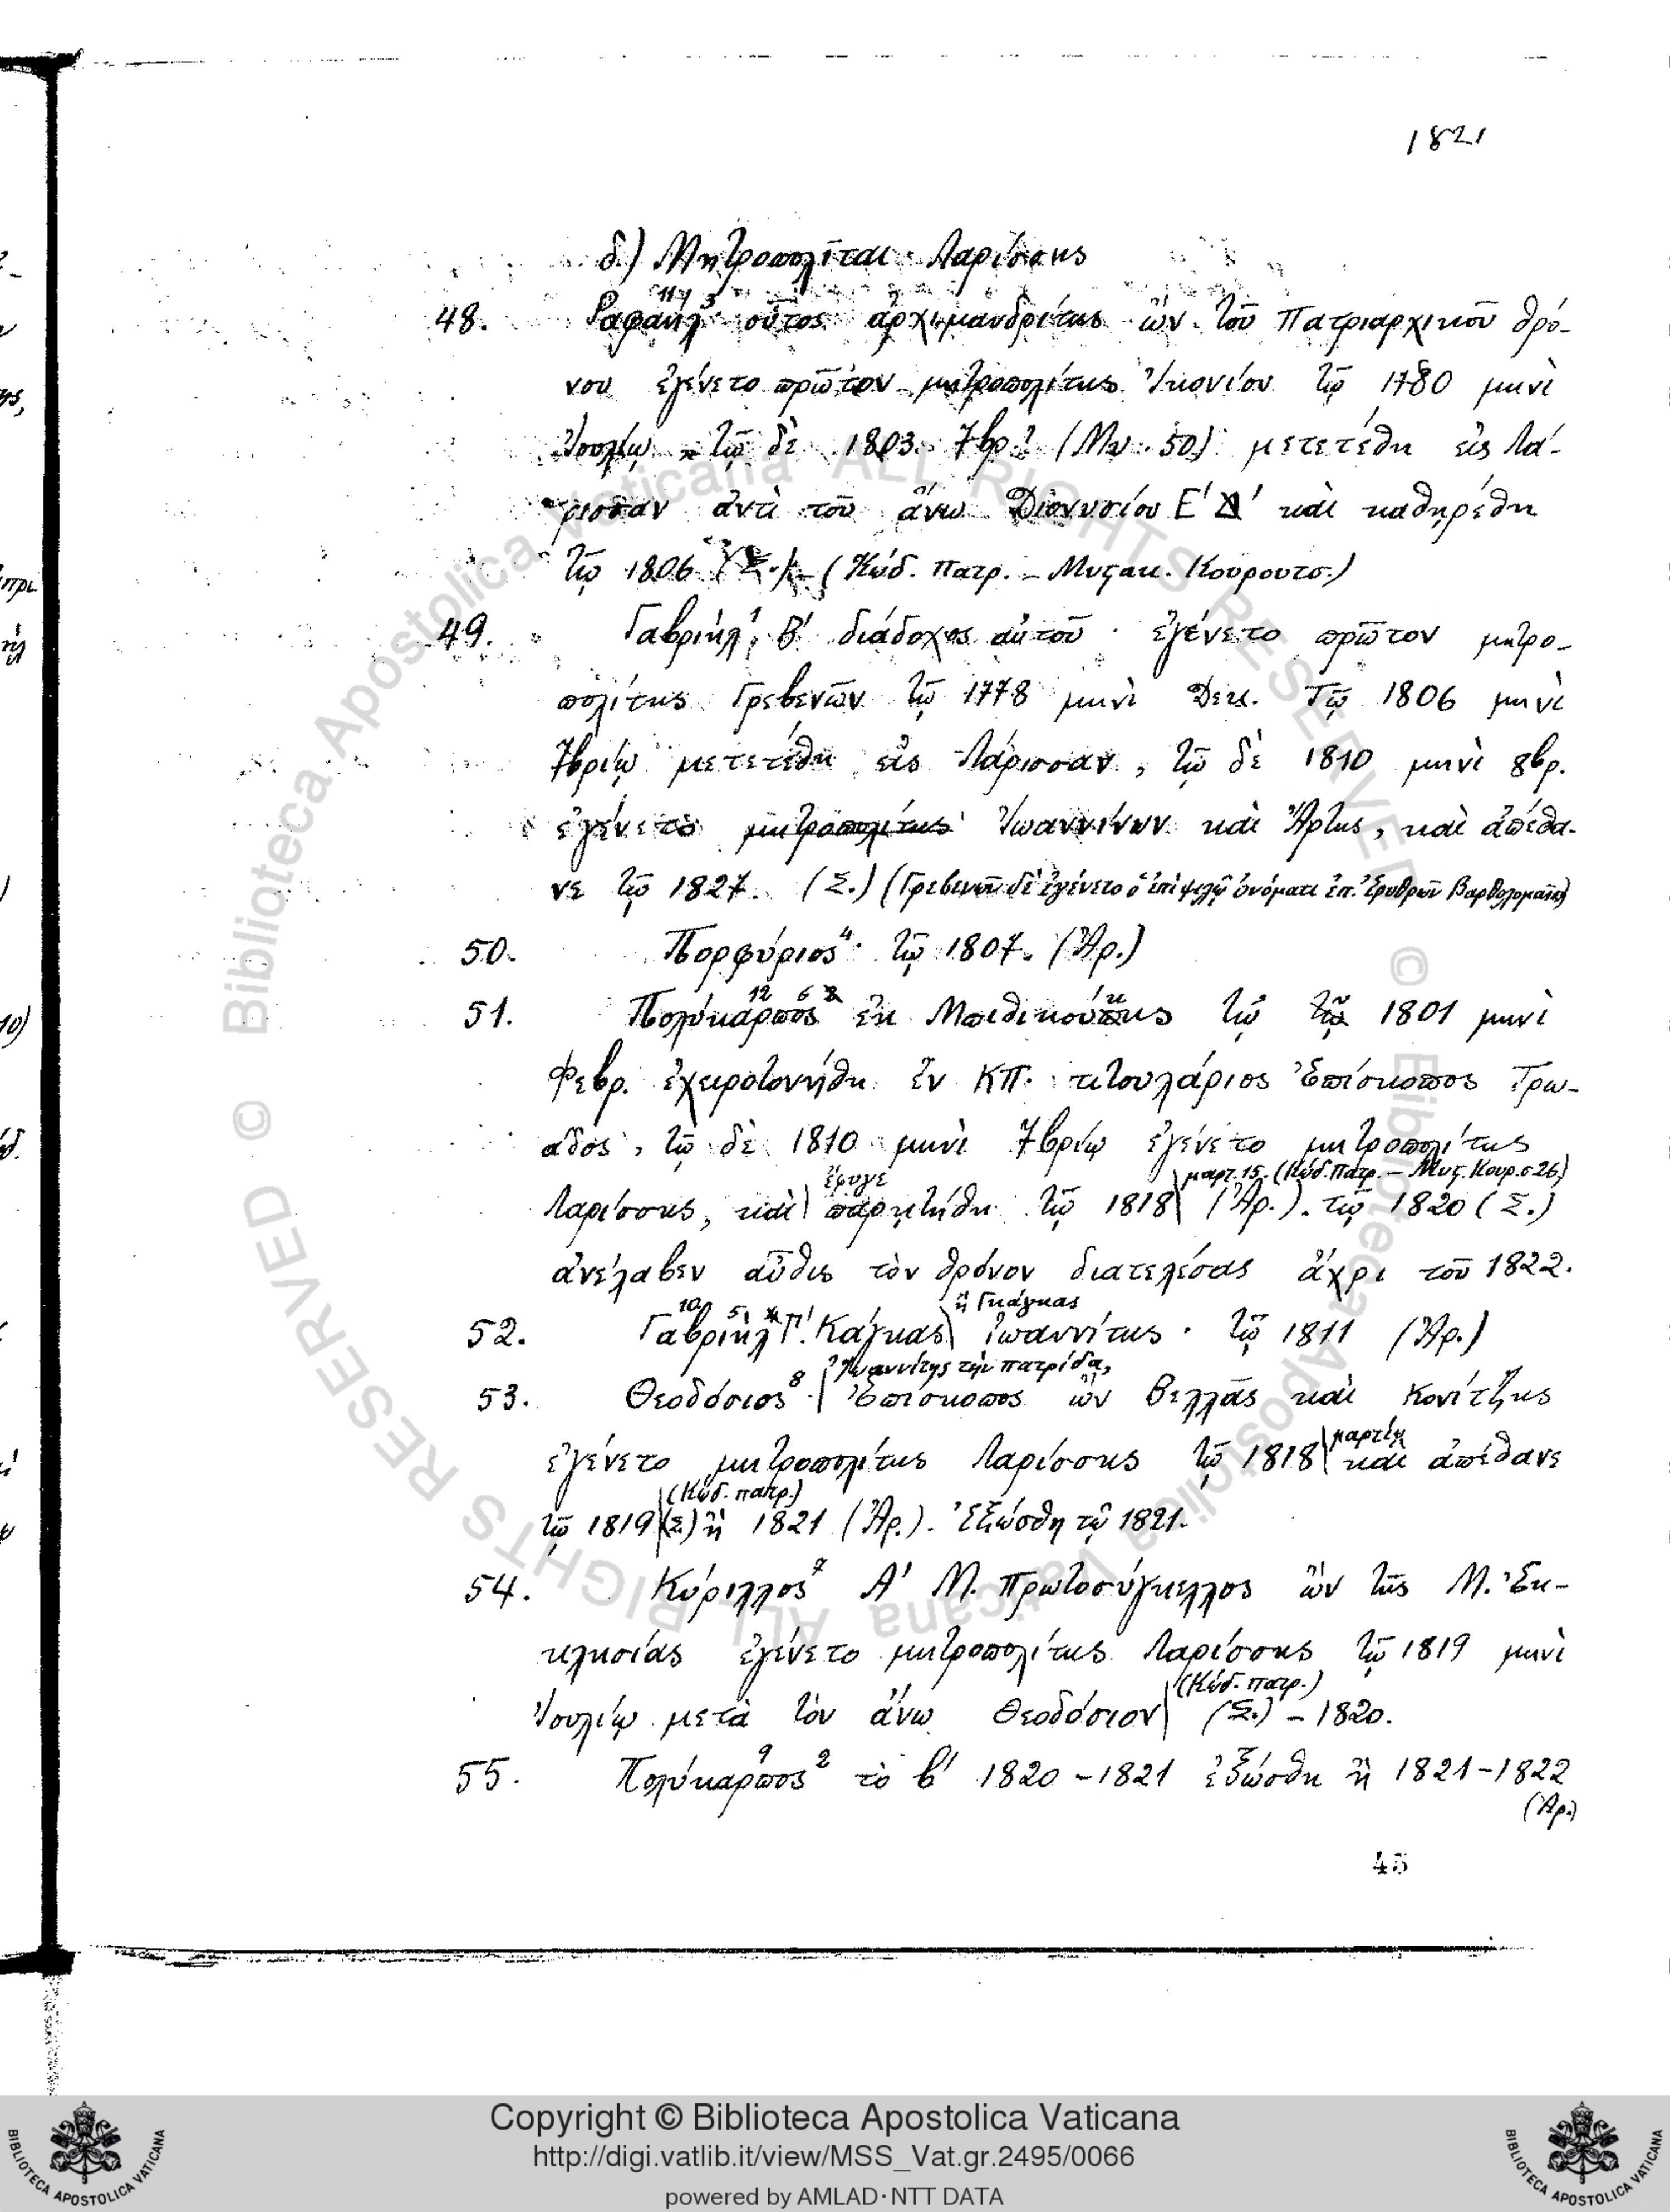 1821
δ.) Μητροπολῖται Λαρίσσης
48. Ῥαφαήλ· οὗτος ἀρχιμανδρίτης ὢν τοῦ Πατριαρχικοῦ θρό-
νου ἐγένετο πρῶτον μητροπολίτης Ἰκονίου τῷ 1780 μηνὶ
Ἰουλίῳ τῷ δὲ 1803 7βρ. (Μν. 50) μετετέθη εἰς Λά-
ρισσαν ἀντὶ τοῦ ἄνω Διονυσίου Ε΄ Δ΄ καὶ καθῃρέθη
τῷ 1806 (Σ.) (Κώδ. πατρ. – Μυςακ. Κουρουτσ.)
49. Γαβριὴλ Β΄ διάδοχος αὐτοῦ· ἐγένετο πρῶτον μητρο-
πολίτης Γρεβενῶν τῷ 1778 μηνὶ Δεκ. Τῷ 1806 μηνὶ
7βρίῳ μετετέθη εἰς Λάρισσαν, τῷ δὲ 1810 μηνὶ 8βρ.
ἐγένετο μητροπολίτης Ἰωαννίνων καὶ Ἄρτης, καὶ ἀπέθα-
νε τῷ 1827. (Σ.) (Γρεβενῶν δὲ ἐγένετο ὁ ἐπὶ ψιλῷ ὀνόματι ἐπ. Ἐρυθρῶν Βαρθολομαῖος)
50. Πορφύριος 4· τῷ 1807. (Ἀρ.)
12 6 2
51. Πολύκαρπος ἐκ τῷ τῷ 1801 μηνὶ
Φεβρ. ἐχειροτονήθη ἐν ΚΠ. τιτουλάριος Ἐπίσκοπος Τρω-
άδος, τῷ δὲ 1810 μηνὶ 7βρίῳ ἐγένετο μητροπολίτης
ἔφυγε μαρτ. 15. (Κώδ. Πατρ. – Μυς. Κουρ. σ. 26)
Λαρίσσης, καὶ παρῃτήθη τῷ 1818 (Ἀρ.). τῷ 1820 (Σ.)
ἀνέλαβεν αὖθις τὸν θρόνον διατελέσας ἄχρι τοῦ 1822.
10 5 ἢ Γκάγκας
52. Γαβριὴλ Γ΄. Κάγκας Ἰωαννίτης· τῷ 1811 (Ἀρ.)
Ἰωαννίτης τὴν πατρίδα,
53. Θεοδόσιος 8· Ἐπίσκοπος ὢν Βελλᾶς καὶ Κονίτζης
μαρτίῳ
ἐγένετο μητροπολίτης Λαρίσσης τῷ 1818 καὶ ἀπέθανε
(Κώδ. πατρ.)
τῷ 1819 (Σ.) ἢ 1821 (Ἀρ.). Ἐξώσθη τῷ 1821.
54. Κύριλλος 7 Α΄ Μ. Πρωτοσύγκελλος ὢν τῆς Μ. Ἐκ-
κλησίας ἐγένετο μητροπολίτης Λαρίσσης τῷ 1819 μηνὶ
(Κώδ. πατρ.)
Ἰουλίῳ μετὰ τὸν ἄνω Θεοδόσιον (Σ.) – 1820.
55. Πολύκαρπος 9 2 τὸ β΄ 1820 – 1821 ἐξώσθη ἢ 1821 – 1822
(Ἀρ.)
45
Copyright © Biblioteca Apostolica Vaticana
http://digi.vatlib.it/view/MSS_Vat.gr.2495/0066
powered by AMLAD·NTT DATA
BIBLIOTECA APOSTOLICA VATICANA
BIBLIOTECA APOSTOLICA VATICANA
© Biblioteca Apostolica Vaticana ALL RIGHTS RESERVED
© Biblioteca Apostolica Vaticana ALL RIGHTS RESERVED